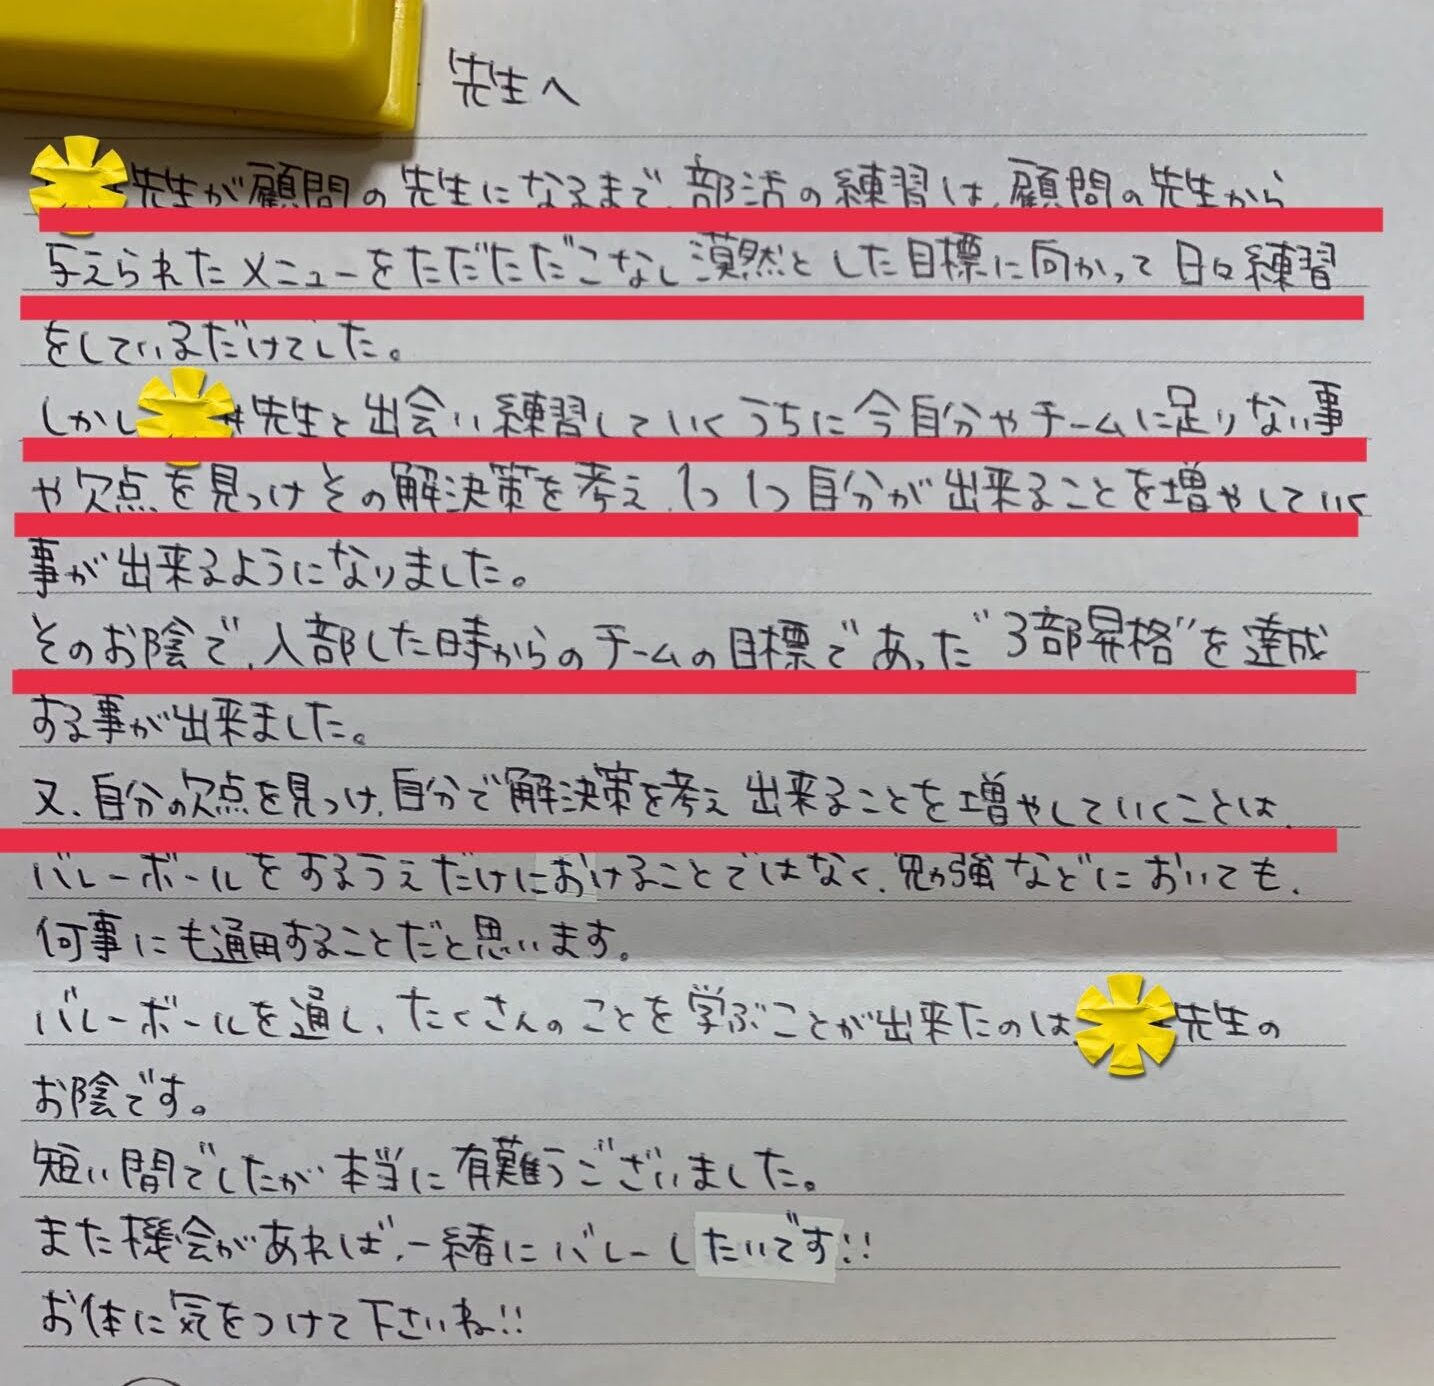 先生へ
先生が顧問の先生になるまで、部活の練習は、顧問の先生から
与えられたメニューをただただこなし漠然とした目標に向かって日々練習
をしているだけでした。
しかし 先生と出会い練習していくうちに今自分やチームに足りない事
や欠点を見つけその解決策を考え、1つ1つ自分が出来ることを増やしていく
事が出来るようになりました。
そのお陰で、入部した時からのチームの目標であった"3部昇格"を達成
する事が出来ました。
又、自分の欠点を見つけ、自分で解決策を考え出来ることを増やしていくことは、
バレーボールをするうえだけにおけることではなく、勉強などにおいても、
何事にも通用することだと思います。
バレーボールを通し、たくさんのことを学ぶことが出来たのは、 先生の
お陰です。
短い間でしたが本当に有難うございました。
また機会があれば、一緒にバレーしたいです!!
お体に気をつけて下さいね!!